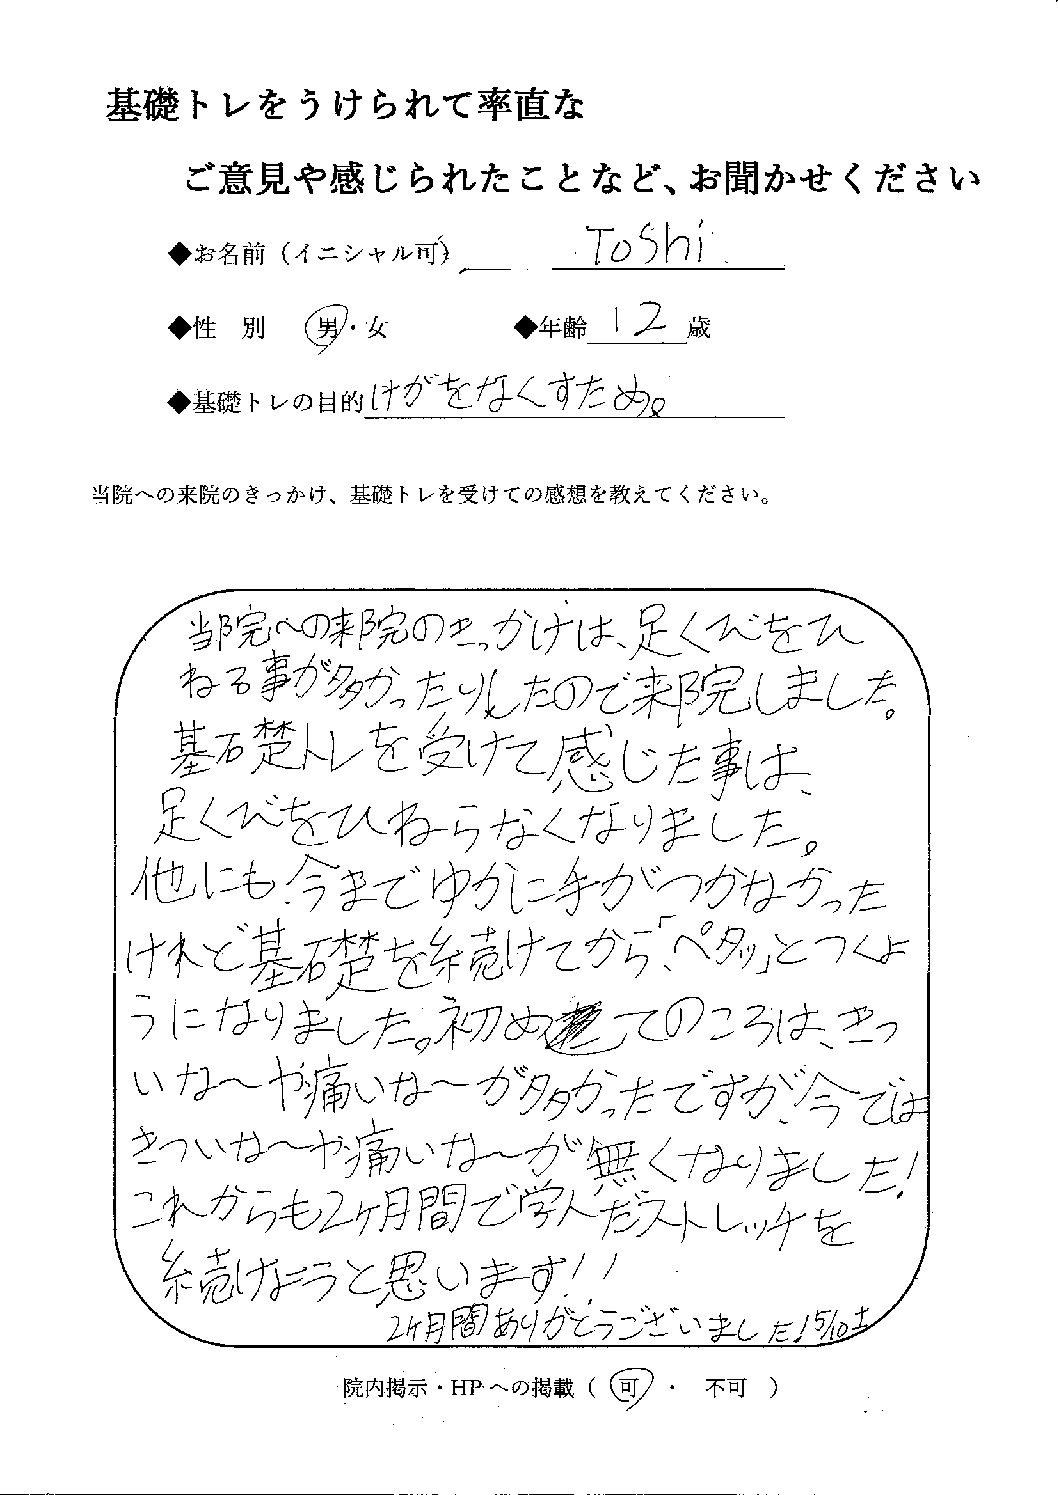 基礎トレをうけられて率直な
ご意見や感じられたことなど、お聞かせください
◆お名前（イニシャル可） Toshi
◆性 別 男・女 ◆年齢 12 歳
◆基礎トレの目的 けがをなくすため。
当院への来院のきっかけ、基礎トレを受けての感想を教えてください。
当院への来院のきっかけは、足くびをひ
ねる事が多かったりしたので来院しました。
基礎トレを受けて感じた事は、
足くびをひねらなくなりました。
他にも、今までゆかに手がつかなかった
けれど基礎を続けてから、「ペタッ」とつくよ
うになりました。初めてのころは、きつ
いな〜や痛いな〜が多かったですが、今では
きついな〜や痛いな〜が無くなりました!
これからも2ヶ月間で学んだストレッチを
続けようと思います!!
2ヶ月間ありがとうございました! 5/10土
院内掲示・HPへの掲載（ 可 ・ 不可 ）